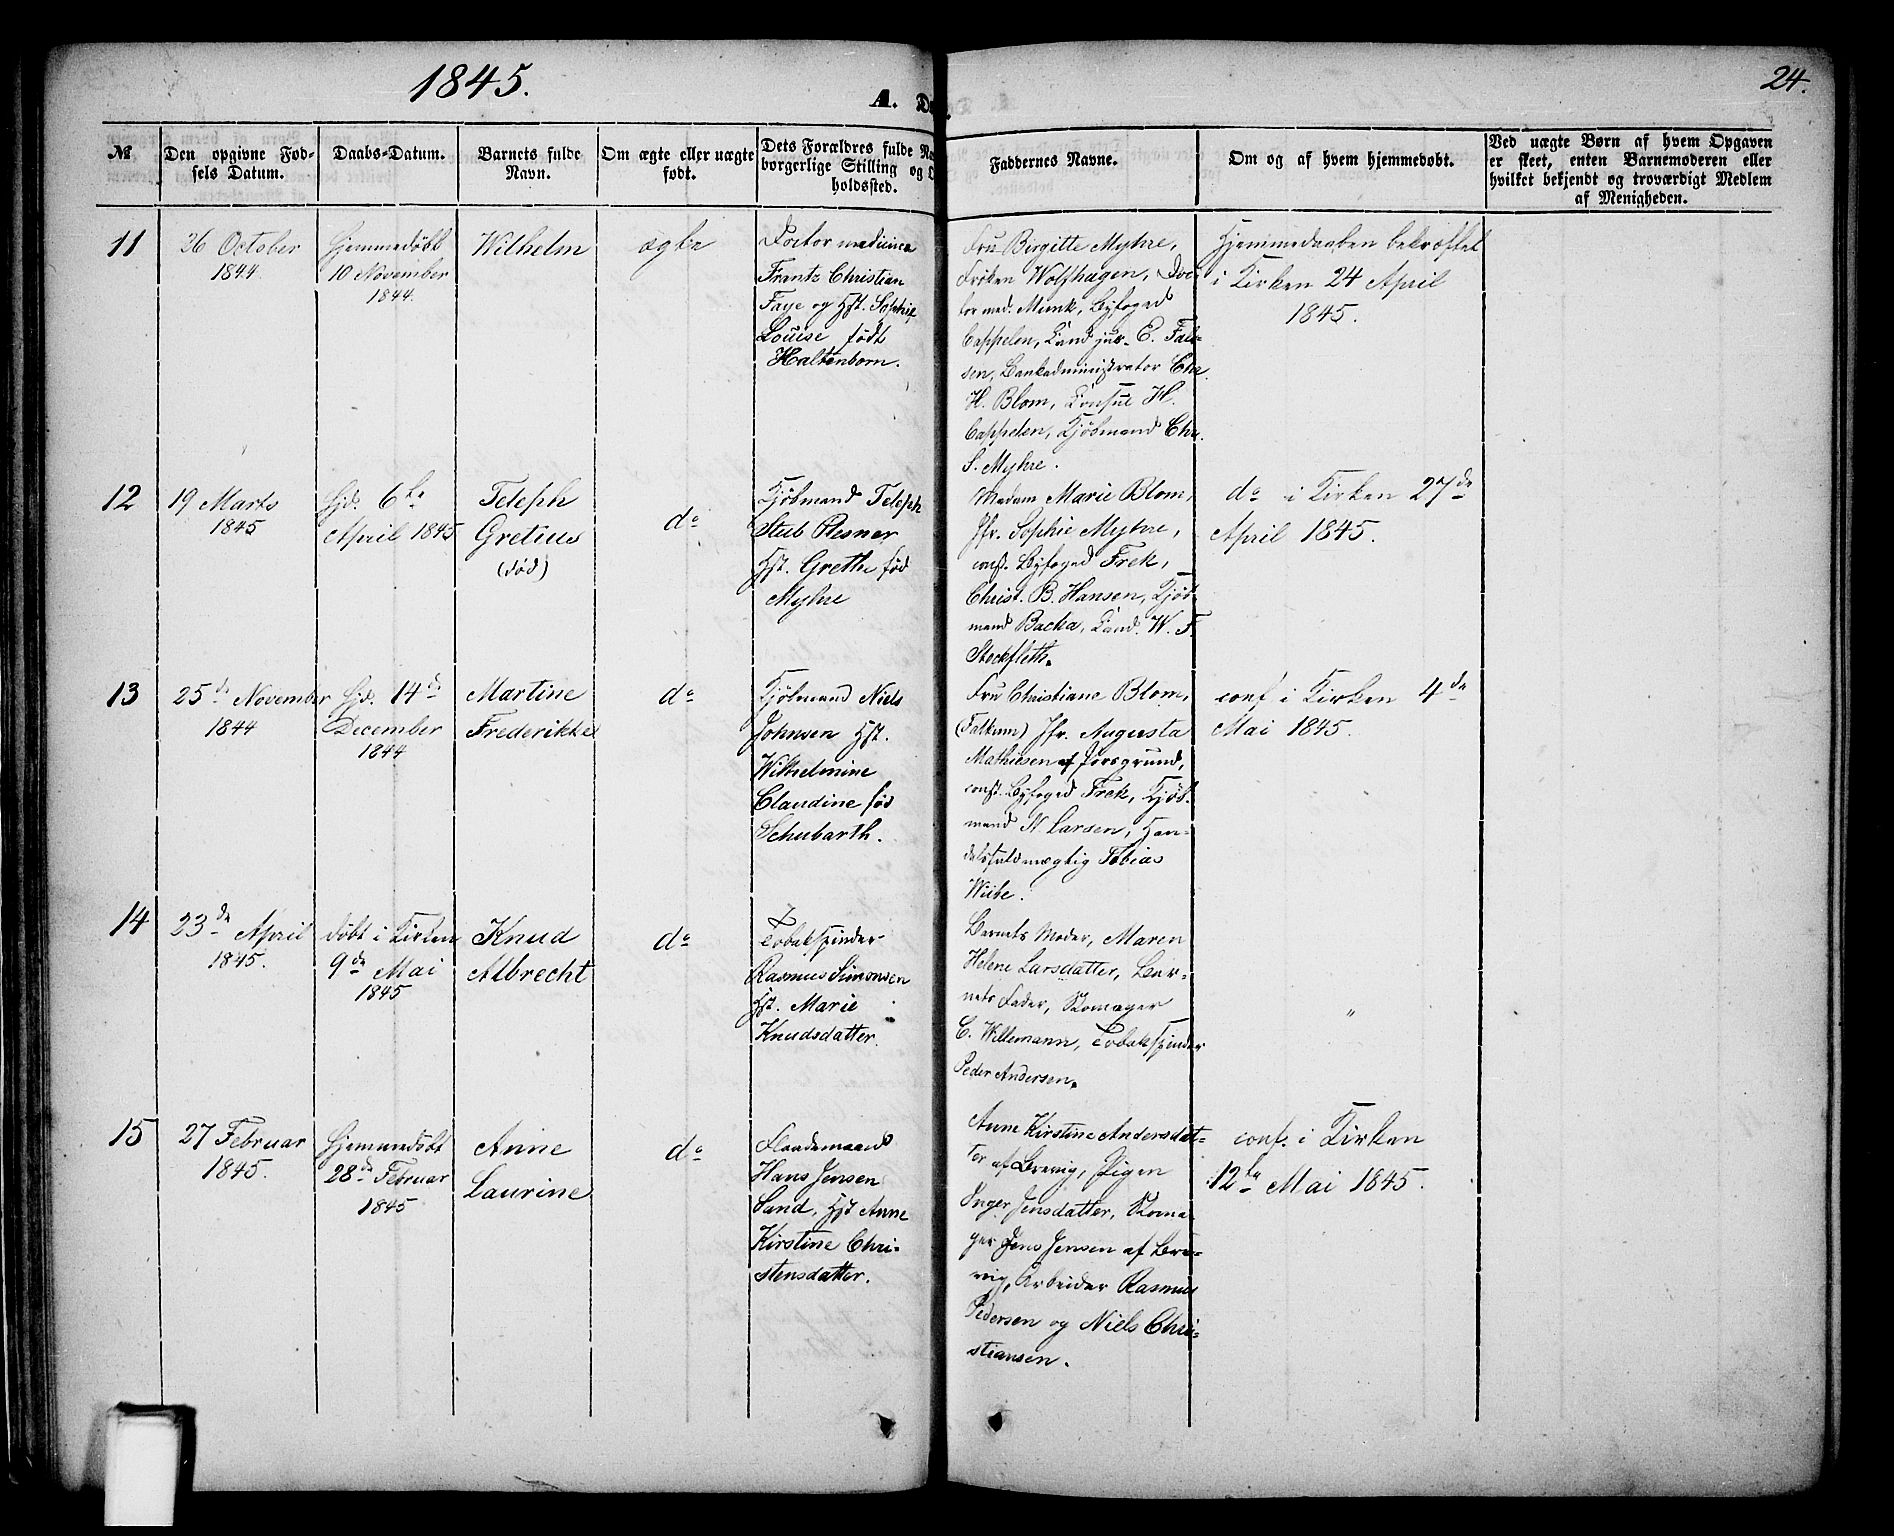 1845.
A. Dø
24.
№
Den opgivne Fød-
sels Datum.
Daabs-Datum.
Barnets fulde
Navn.
Om ægte eller uægte
født.
Dets Forældres fulde Na
borgerlige Stilling og O
holdssted.
Faddernes Navne.
Om og af hvem hjemmedøbt.
Ved uægte Børn af hvem Opgaven
er skeet, enten Barnemoderen eller
hvilket bekjendt og troværdigt Medlem
af Menigheden.
11
26 October
1844.
Hjemmedøbt
10 November
1844.
Wilhelm
ægte
Doctor medicinæ
Frantz Christian
Faye og Hst. Sophie
Louise født
Haltenborn.
Fru Birgitte Myhre,
Frøken Wolfhagen, Doc-
tor med. Munk, Byfoged
Cappelen, Cand. jur. E. Fal-
sen, Bankadministrator Chr.
H. Blom, Consul H.
Cappelen, Kjøbmand Chr.
S. Myhre.
Hjemmedaaben bekræftet
i Kirken 24 April
1845.
12
19 Marts
1845
Hjd. 6te
April 1845
Teleph
Gretius
(død)
do
Kjøbmand Teleph
Stub Plesner
Hst. Grethe fød
Myhre
Madam Marie Blom,
Jfr. Sophie Myhre,
const. Byfoged Frek,
Christ. B. Hansen, Kjøb-
mand Backa, Cand. W. F.
Stockfleth.
do i Kirken 27de
April 1845.
13
25de November
1844
Hjd. 14de
December
1844
Martine
Frederikke
do
Kjøbmand Niels
Johnsen Hst.
Wilhelmine
Claudine fød
Schubarth.
Fru Christiane Blom,
(Falkum) Jfr. Augusta
Mathiesen af Porsgrund,
const. Byfoged Frek, Kjøb-
mand N. Larsen, Han-
delsfuldmægtig Tobias
Wiibe.
conf. i Kirken 4de
Mai 1845.
14
23de April
1845.
døbt i Kirken
9de Mai
1845
Knud
Albrecht
do
Tobakspinder
Rasmus Simonsen
Hst. Marie
Knudsdatter.
Barnets Moder, Maren
Helene Larsdatter, Bar-
nets Fader, Skomager
C. Willemann, Tobakspinder
Peder Andersen.
"
15
27 Februar
1845.
Hjemmedøbt
28de Februar
1845
Anne
Laurine
do
Flaademand
Hans Jensen
Sand, Hst Anne
Kirstine Chri-
stensdatter.
Anne Kirstine Andersdat-
ter af Brevig, Pigen
Inger Jensdatter, Skoma-
ger Jens Jensen af Bre-
vig, Arbeider Rasmus
Pedersen og Niels Chri-
stiansen.
conf. i Kirken
12te Mai 1845.